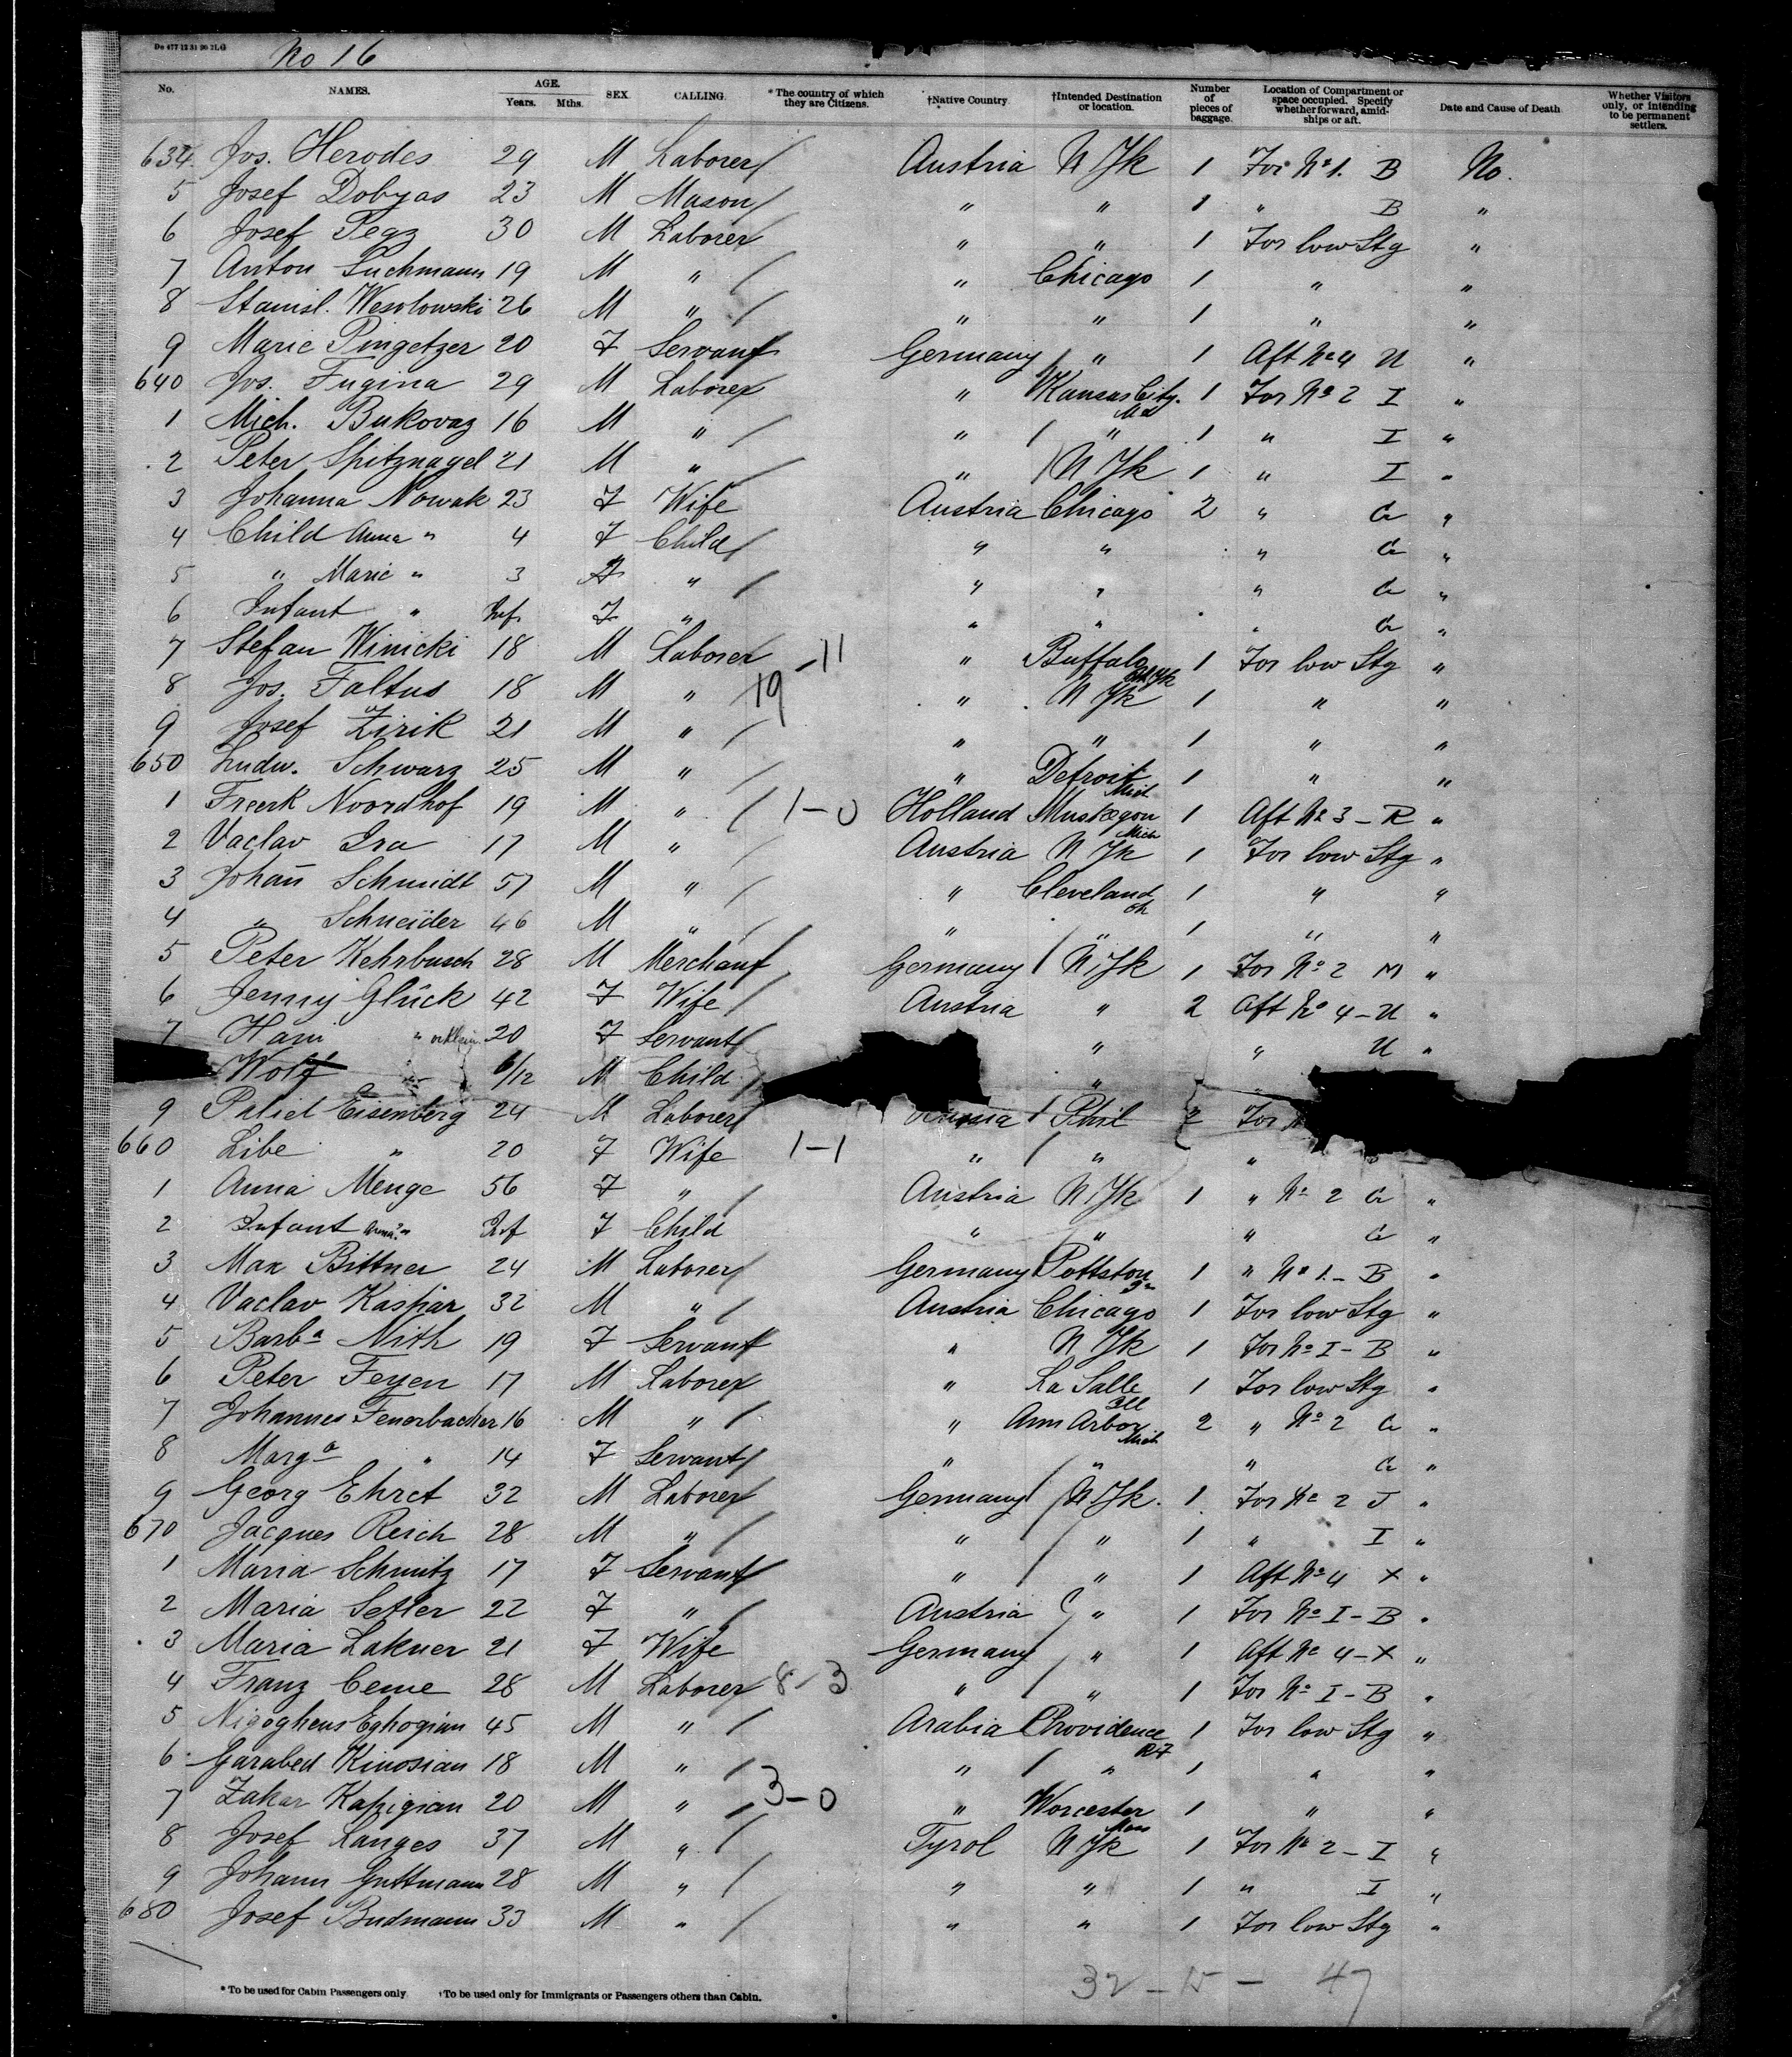 Do 477 12 31 90 2LG
No 16
No. NAMES. AGE. Years. Mths. SEX. CALLING. *The country of which they are Citizens. †Native Country. †Intended Destination or location. Number of pieces of baggage. Location of Compartment or space occupied. Specify whether forward, amidships or aft. Date and Cause of Death. Whether Visitors only, or intending to be permanent settlers.
634 Jos. Herodes 29 M Laborer Austria N Yk 1 For No 1. B No.
5 Josef Dobyas 23 M Mason " " 1 " B "
6 Josef Pegz 30 M Laborer " " 1 For low Stg "
7 Anton Suchmann 19 M " " Chicago 1 " "
8 Stanisl. Wesolowski 26 M " " " 1 " "
9 Marie Pingetzer 20 F Servant Germany " 1 Aft No 4 U "
640 Jos. Fugina 29 M Laborer " Kansas City. Mo 1 For No 2 I "
1 Mich. Bukovaz 16 M " " " 1 " I "
2 Peter Spitznagel 21 M " " N Yk 1 " I "
3 Johanna Nowak 23 F Wife Austria Chicago 2 " G "
4 Child Anna " 4 F Child " " " G "
5 " Marie " 3 F " " " " G "
6 Infant " Inf. F " " " " G "
7 Stefan Winicki 18 M Laborer 11 " Buffalo N Yk 1 For low Stg "
8 Jos. Faltus 18 M " 19 " N Yk 1 " "
9 Josef Zirik 21 M " " " 1 " "
650 Ludw. Schwarz 25 M " " Detroit Mich 1 " "
1 Freerk Noordhof 19 M " 1-0 Holland Muskegon Mich 1 Aft No 3 - R "
2 Vaclav Ira 17 M " Austria N Yk 1 For low Stg "
3 Johañ Schmidt 57 M " " Cleveland Oh 1 " "
4 " Schneider 46 M " " " 1 " "
5 Peter Kehrbusch 28 M Merchant Germany N Yk 1 For No 2 M "
6 Jenny Glück 42 F Wife Austria " 2 Aft No 4 - U "
7 Hani " 20 F Servant " " U "
Wolf " 6/12 M Child "
9 Eisenberg 24 M Laborer Russia Phil 2 For
660 Libe " 20 F Wife 1-1 " " "
1 Anna Menge 56 F " Austria N Yk 1 " No 2 G "
2 Infant Anna? " Inf F Child " " " G "
3 Max Bittner 24 M Laborer Germany Pottston Pa 1 " No 1. - B "
4 Vaclav Kaspar 32 M " Austria Chicago 1 For low Stg "
5 Barba Nith 19 F Servant " N Yk 1 For No I - B "
6 Peter Feyen 17 M Laborer " La Salle Ill 1 For low Stg "
7 Johannes Feuerbacher 16 M " " Ann Arbor Mich 2 " No 2 G "
8 Marga " 14 F Servant " " " G "
9 Georg Ehret 32 M Laborer Germany N Yk. 1 For No 2 J "
670 Jacques Reich 28 M " " " 1 " I "
1 Maria Schmitz 17 F Servant " " 1 Aft No 4 X "
2 Maria Setler 22 F " Austria " 1 For No I - B "
3 Maria Lakner 21 F Wife Germany " 1 Aft No 4 - X "
4 Franz Ceme 28 M Laborer 8-3 " " 1 For No I - B "
5 Nigoghens Eghogian 45 M " Arabia Providence R.I 1 For low Stg "
6 Garabed Kinosian 18 M " " " 1 " "
7 Zakar Kapigian 20 M " 3-0 " Worcester Mass 1 " "
8 Josef Langes 37 M " Tyrol N Yk 1 For No 2 - I "
9 Johann Guttmann 28 M " " " 1 " I "
680 Josef Budmann 33 M " " " 1 For low Stg "
32 - 15 - 47
*To be used for Cabin Passengers only †To be used only for Immigrants or Passengers others than Cabin.